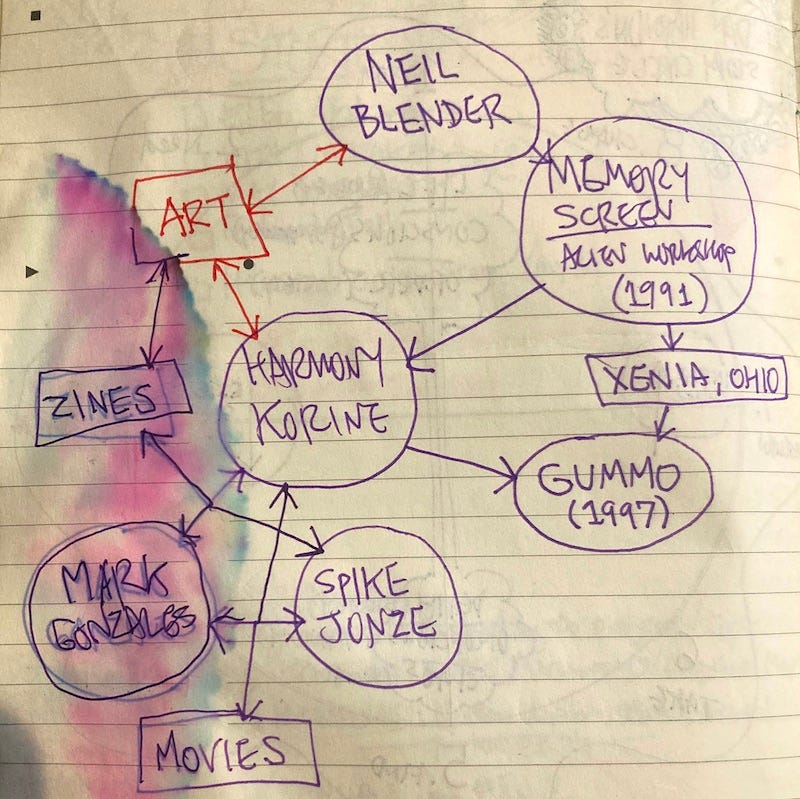 NEIL
BLENDER
MEMORY
SCREEN
ALIEN WORKSHOP
(1991)
ART
HARMONY
KORINE
XENIA, OHIO
ZINES
GUMMO
(1997)
MARK
GONZALES
SPIKE
JONZE
MOVIES